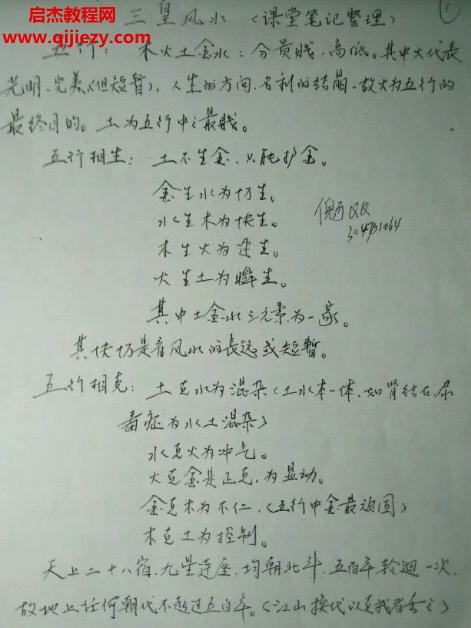 启杰教程网
qijiejc.com
三皇风水 (课堂笔记整理) ①
五行: 木火土金水: 分贵贱、高低。其中火代表
光明、完美(但短暂), 人生的方向、名利的结晶、故火为五行的
最终目的。土为五行中之最贱。
五行相生: 土不生金、只能护金。
金生水为切生。
水生木为快生。
QQ
木生火为速生。
火生土为瞬生。
其中土金水三元素为一家。
其快切是看风水的长远或短暂。
五行相克: 土克水为混杂(土水本一体、如肾结石、尿
毒症为水土混杂)
水克火为冲气。
火克金是正克、为显动。
金克木为不仁、(五行中金最顽固)
木克土为控制。
天上二十八宿、九星连座、均朝北斗、五百年轮迴一次、
故地上任何朝代不超过五百年。(江山换代以